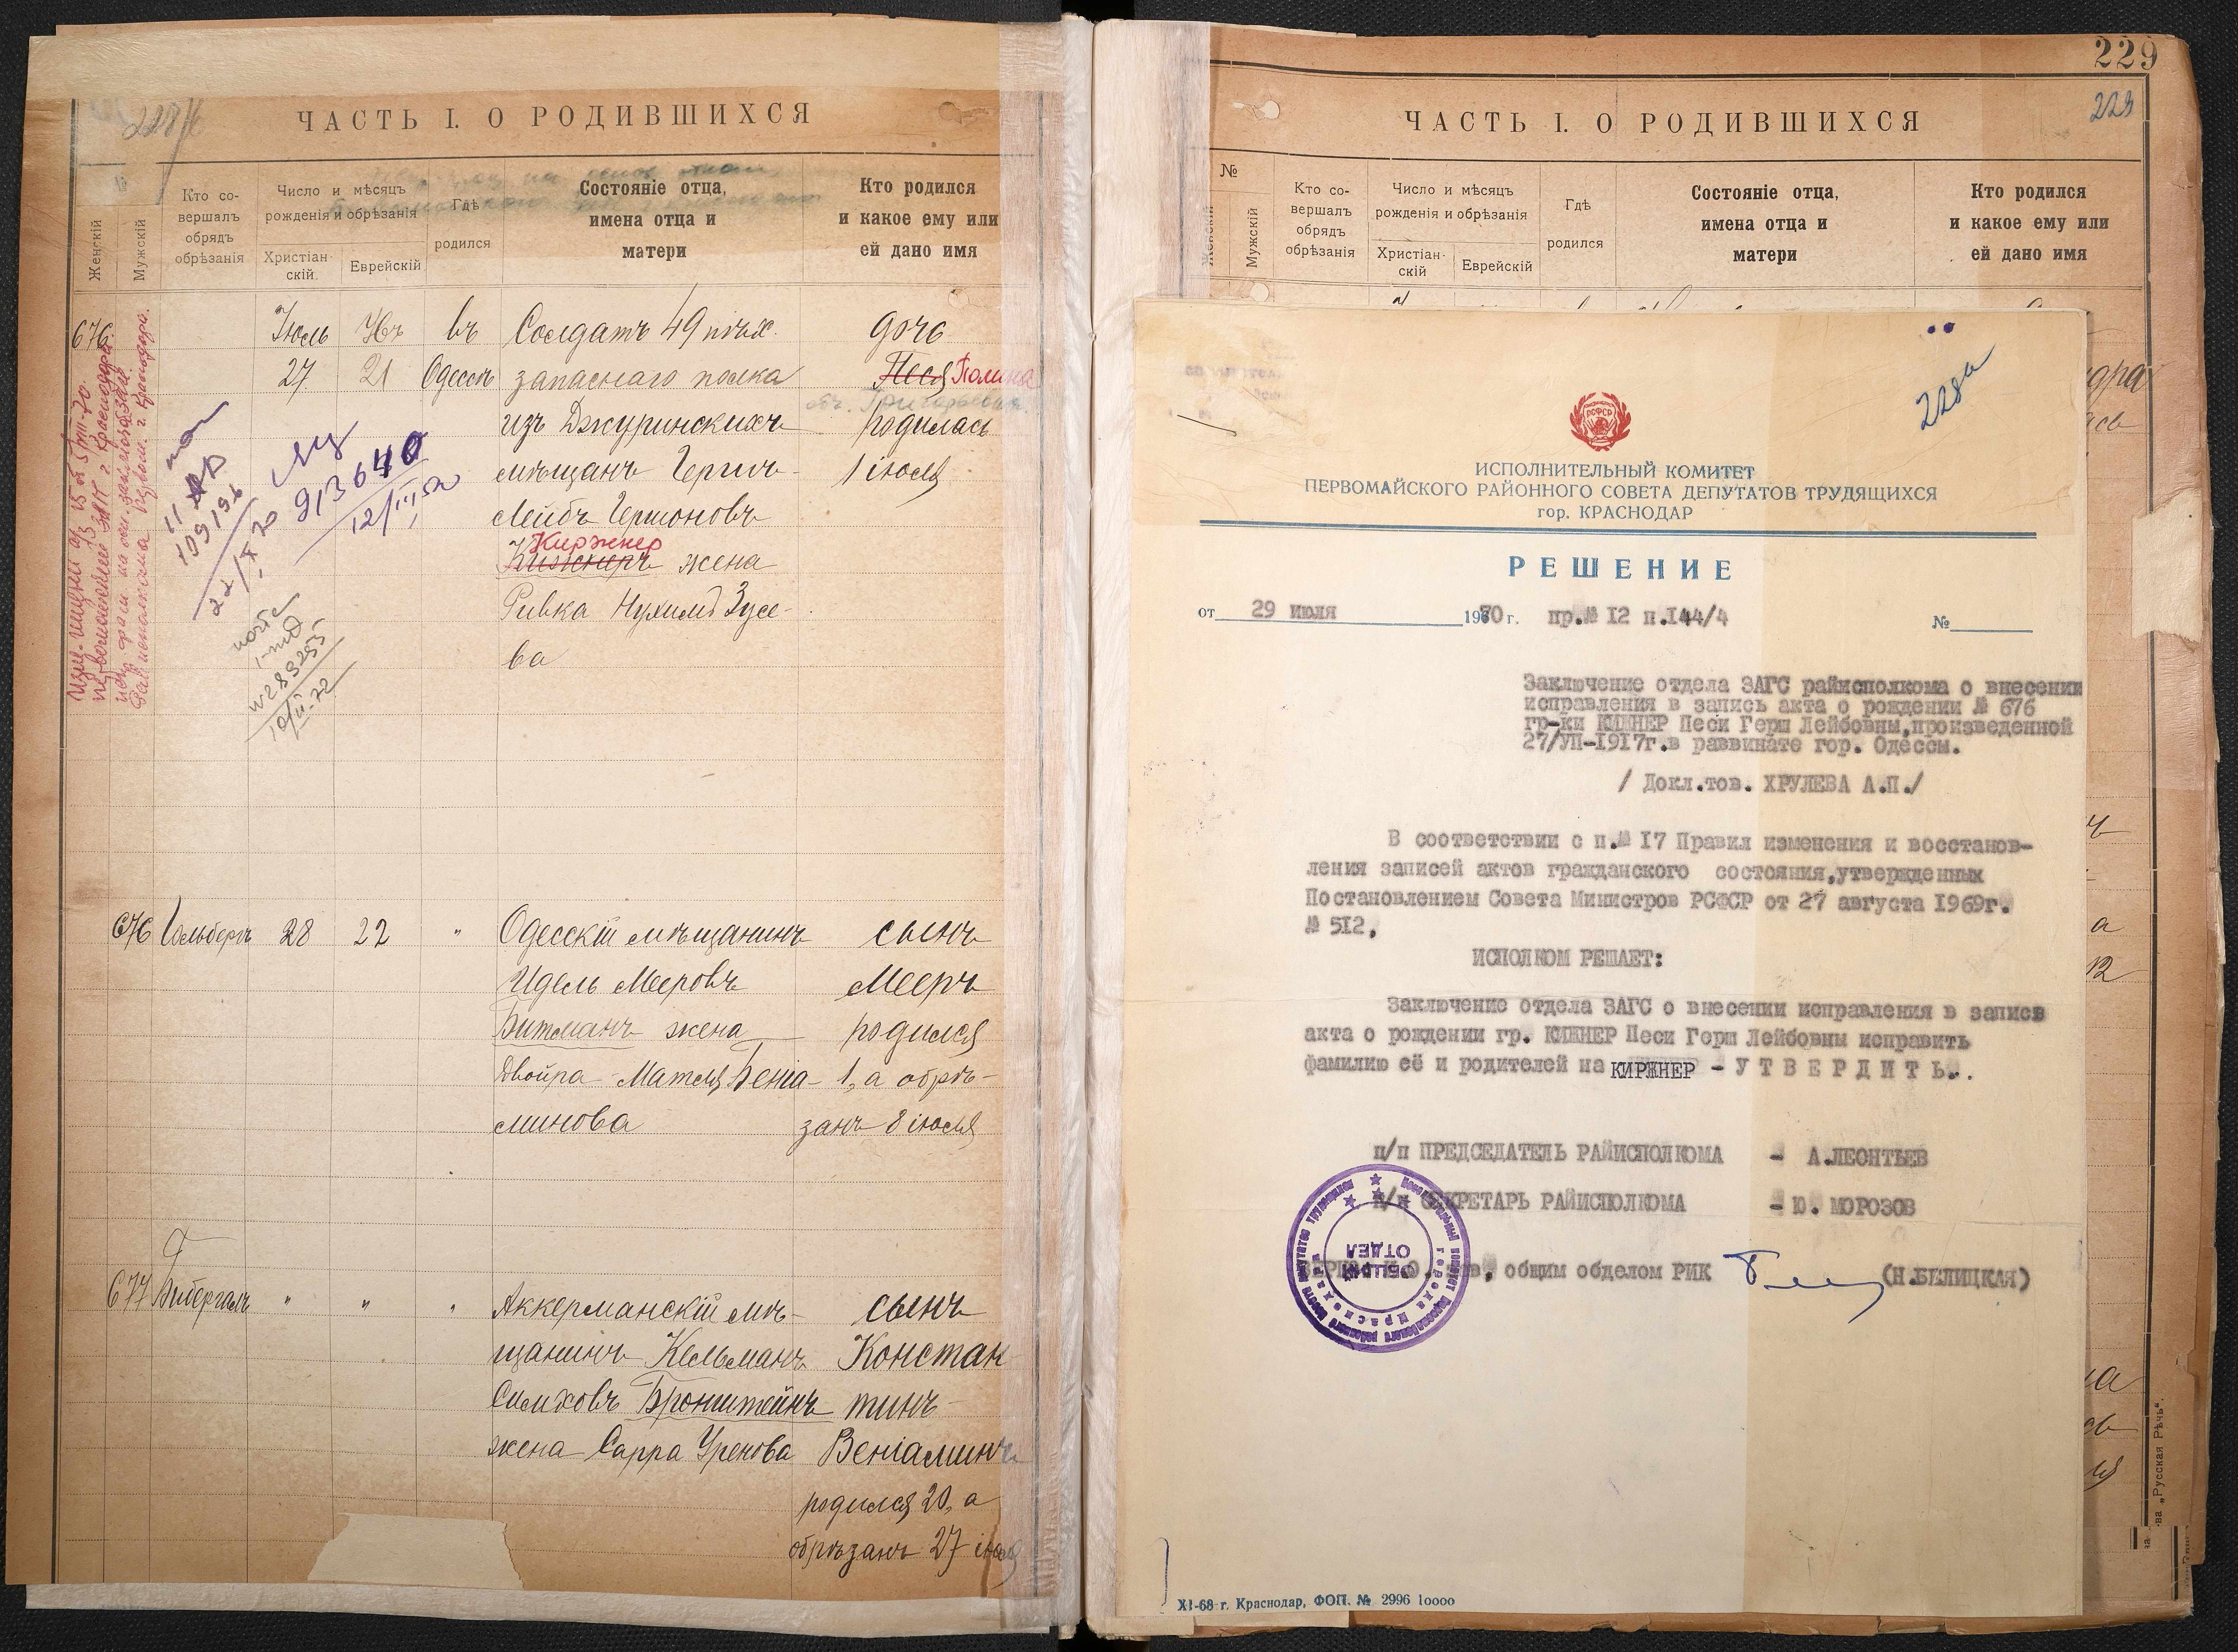 228
ЧАСТЬ I. О РОДИВШИХСЯ
№
Женскій
Мужскій
Кто со-
вершалъ
обрядъ
обрѣзанія
Число и мѣсяцъ
рожденія и обрѣзанія
Христіан-
скій.
Еврейскій
Гдѣ
родился
Состояніе отца,
имена отца и
матери
Кто родился
и какое ему или
ей дано имя
676. Іюль въ Солдатъ 49 пѣх. дочь
27 21 Одессѣ запаснаго полка Песя Полина
изъ Джуринскихъ родилась
мѣщанъ Гершъ- 1 іюля
Лейбъ Гершоновъ
Киржнер
Кижнеръ жена
Ривка Нухимъ Зусе-
ва
913640
12/III
109196
22/X 70
676 Гольбергъ 28 22 " Одесскій мѣщанинъ сынъ
Идель Мееровъ Мееръ
Битманъ жена родился
Двойра-Матля Беніа- 1, а обрѣ-
минова занъ 8 іюля
677 Бибергалъ " " " Аккерманскій мѣ- сынъ
щанинъ Кельманъ Констан
Симховъ Бронштейнъ тинъ-
жена Сарра Уренова Веніаминъ
родился 20, а
обрѣзанъ 27 іюля
229
229
ЧАСТЬ I. О РОДИВШИХСЯ
№
Женскій
Мужскій
Кто со-
вершалъ
обрядъ
обрѣзанія
Число и мѣсяцъ
рожденія и обрѣзанія
Христіан-
скій
Еврейскій
Гдѣ
родился
Состояніе отца,
имена отца и
матери
Кто родился
и какое ему или
ей дано имя
228а
РСФСР
ИСПОЛНИТЕЛЬНЫЙ КОМИТЕТ
ПЕРВОМАЙСКОГО РАЙОННОГО СОВЕТА ДЕПУТАТОВ ТРУДЯЩИХСЯ
гор. КРАСНОДАР
РЕШЕНИЕ
от 29 июля 1970 г. пр.№ 12 п.144/4 №
Заключение отдела ЗАГС райисполкома о внесении
исправления в запись акта о рождении № 676
гр-ки КИЖНЕР Песи Герш Лейбовны,произведенной
27/УП-1917г.в раввинате гор. Одессы.
/ Докл.тов. ХРУЛЕВА А.П./
В соответствии с п.№ 17 Правил изменения и восстанов-
ления записей актов гражданского состояния,утвержденных
Постановлением Совета Министров РСФСР от 27 августа 1969г.
№ 512,
ИСПОЛКОМ РЕШАЕТ:
Заключение отдела ЗАГС о внесении исправления в запись
акта о рождении гр. КИЖНЕР Песи Герш Лейбовны исправить
фамилию её и родителей на КИРЖНЕР - У Т В Е Р Д И Т Ь.
п/п ПРЕДСЕДАТЕЛЬ РАЙИСПОЛКОМА - А.ЛЕОНТЬЕВ
п/п СЕКРЕТАРЬ РАЙИСПОЛКОМА - Ю. МОРОЗОВ
общим обделом РИК (Н.БЕЛИЦКАЯ)
ОБЩИЙ
ОТДЕЛ
XI-68 г. Краснодар, ФОП. № 2996 10000
„Русская Рѣчь".